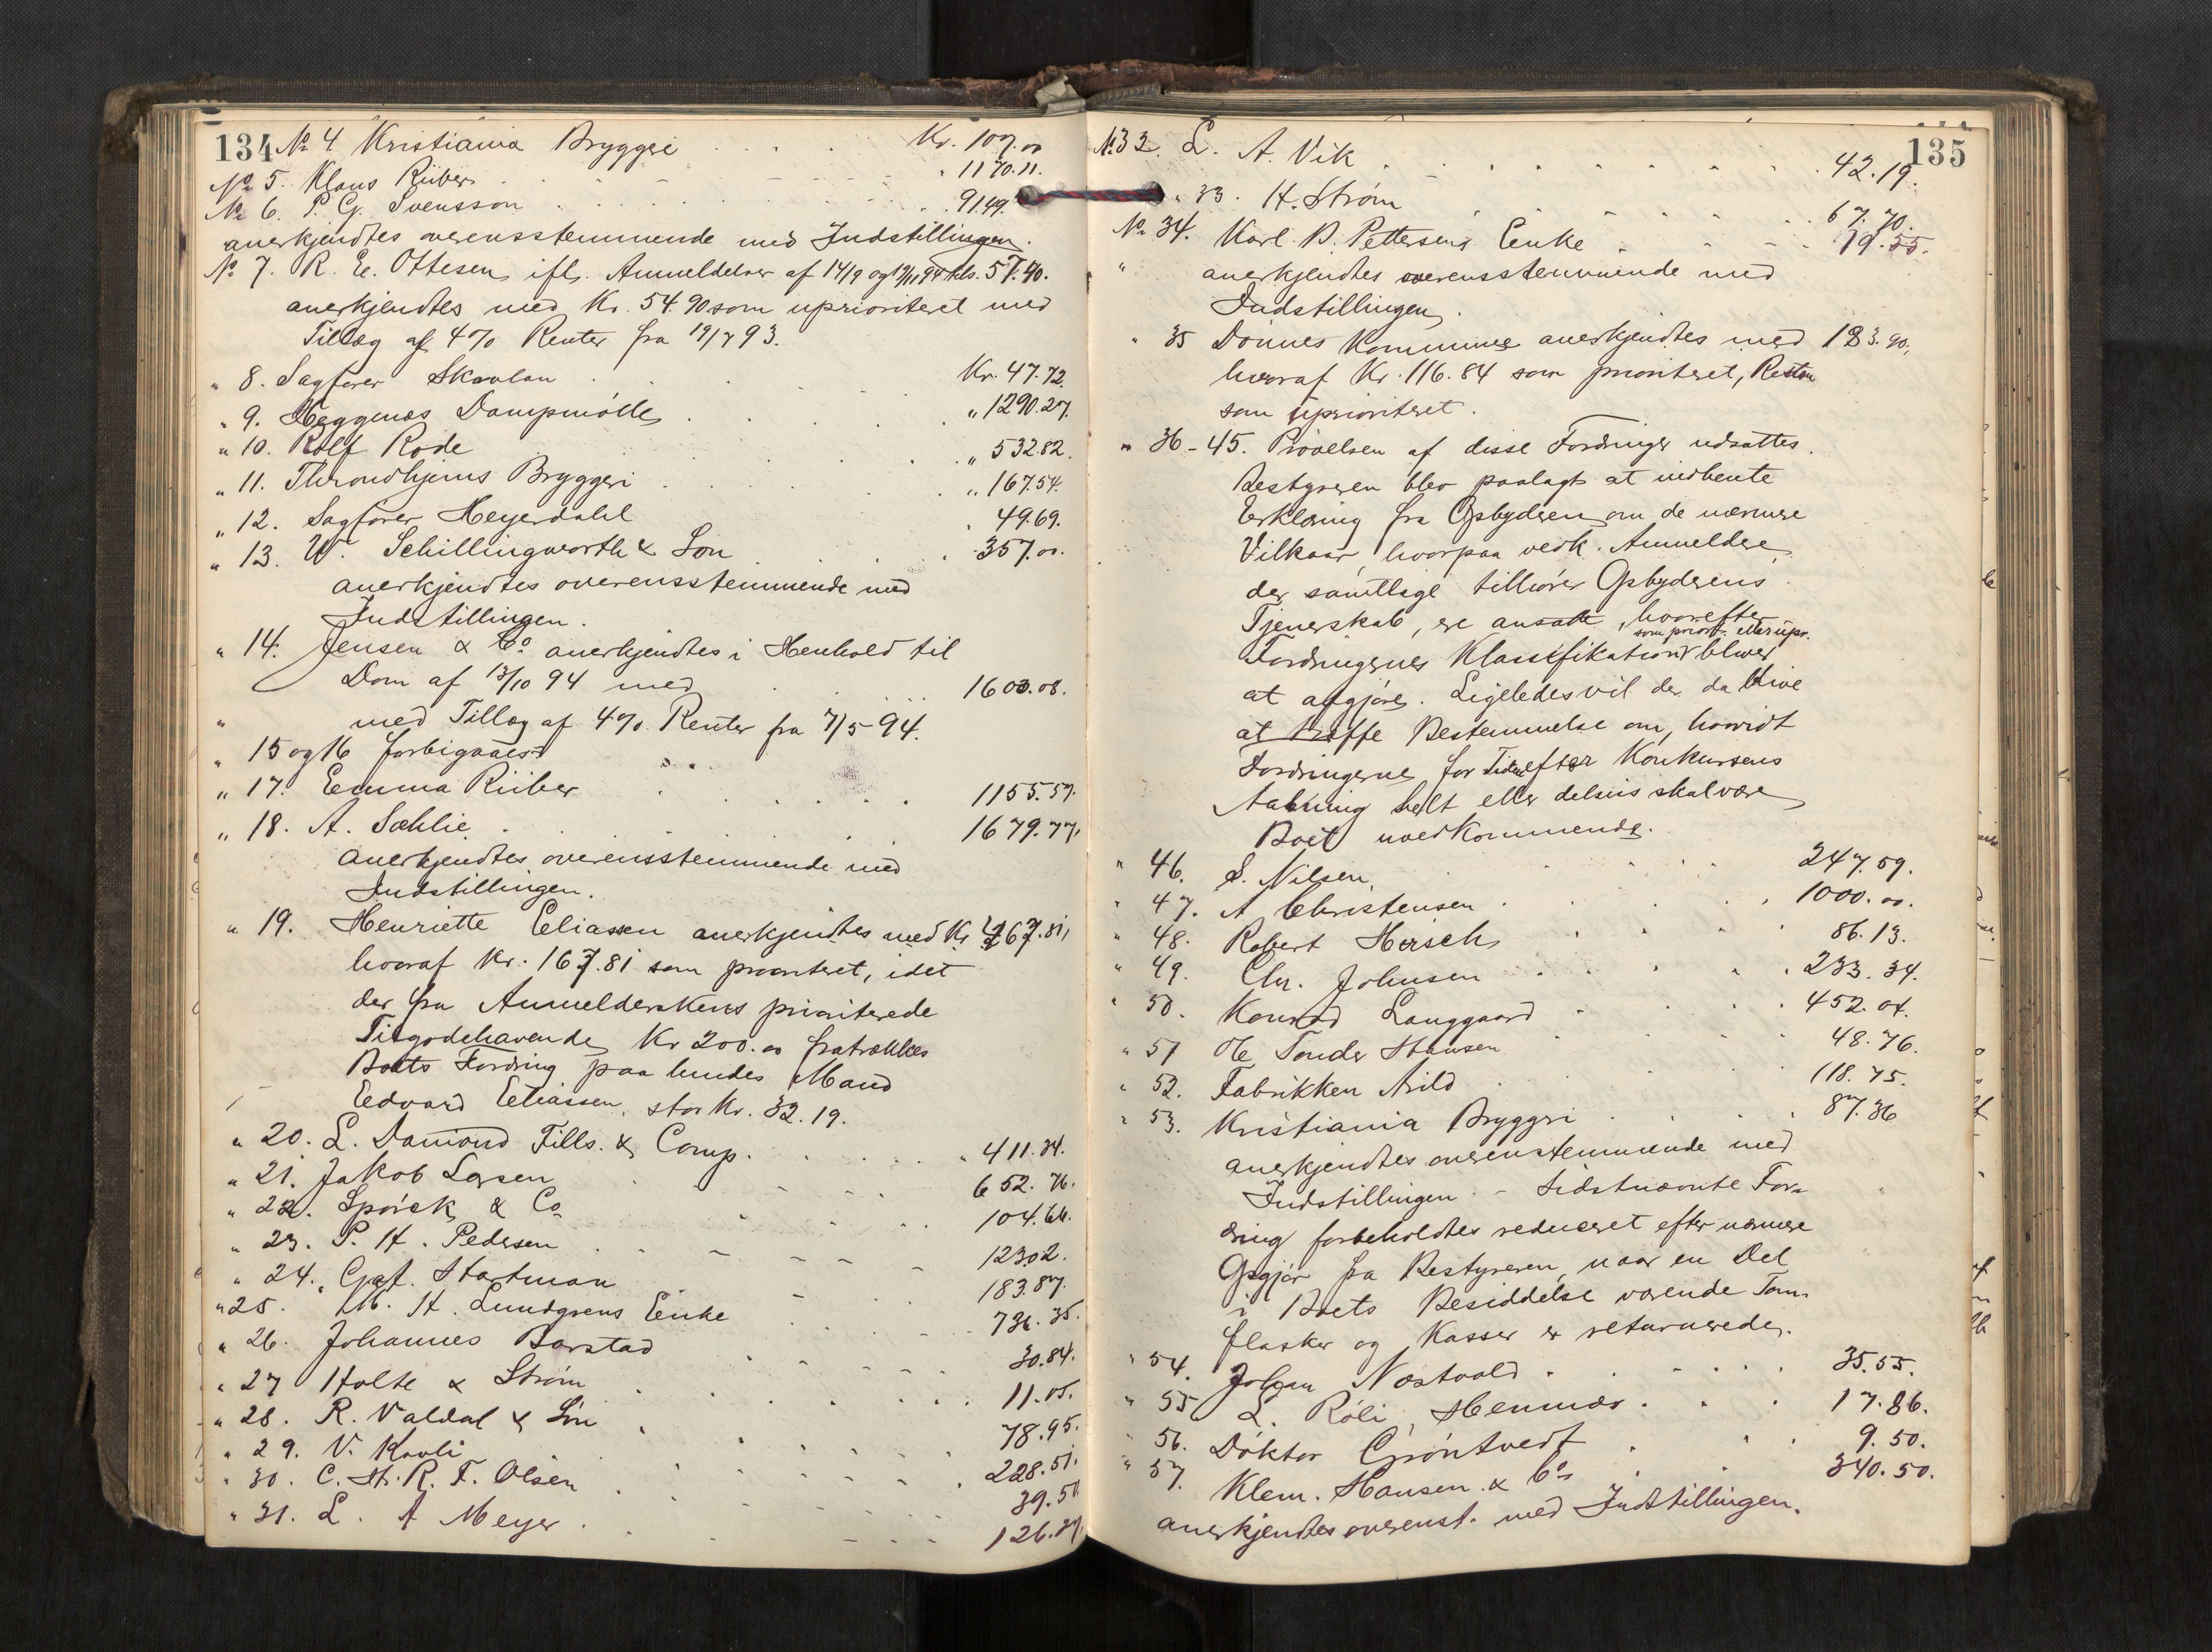 134
№ 4. Kristiania Bryggeri . . . . Kr. 107.00
№ 5. Klaus Riiber . . . . " 1170.11.
№ 6. P. G. Svensson . . . . " 91.49.
anerkjendtes overensstemmende med Indstillingen.
№ 7. R. E. Ottesen ifl. Anmeldelser af 14/9 og 94 Kr. 57.40.
anerkjendtes med Kr. 54.90 som uprioriteret med
Tillæg af 4% Renter fra 19/7 93.
" 8. Sagfører Skavlan . . Kr. 47.72.
" 9. Heggenæs Dampmølle . . . " 1290.27.
" 10. Rolf Rode . . . " 532.82.
" 11. Throndhjems Bryggeri . . . " 167.54.
" 12. Sagfører Heyerdahl . 49.69.
" 13. W. Schillingworth & Søn . . 357.00.
anerkjendtes overensstemmende med
Indstillingen.
" 14. Jensen & Co anerkjendtes i Henhold til
Dom af 13/10 94 med . . . 1603.08.
" med Tillæg af 4% Renter fra 7/5 94.
" 15 og 16 forbigaaes
" 17. Emma Riiber . . . . . 1155.57.
" 18. A. Sæhlie . . . 1679.77.
anerkjendtes overensstemmende med
Indstillingen.
" 19. Henriette Eliassen anerkjendtes med Kr 467.81,
hvoraf Kr. 167.81 som prioriteret, idet
der fra Anmelderskens prioriterede
Tilgodehavende Kr 200.00 fratrækkes
Boets Fordring paa hendes Mand
Edvard Eliassen, stor Kr. 32.19.
" 20. L. Damond Fills. & Comp. . . . . . " 411.34.
" 21. Jakob Larsen . . . 652.76.
" 22. Spørck & Co . . . 104.66.
" 23. P. H. Pedersen . . . 123.02.
" 24. Hartman . . . 183.87.
" 25. M. H. Lundgrens Enke . . . 736.35.
" 26. Johannes Barstad . . . 30.84.
" 27 Holte & Strøm . . . 11.05.
" 28. R. Valdal & Søn . . . 78.95.
" 29. V. Kavli . . . 228.51.
" 30. C. H. R. F. Olsen . . . 39.50
" 31. L. A Meyer . . . 126.27.
135
№ 32. L. A. Vik . . . . . . . 42.19.
" 33. H. Strøm . . . . . . 67.70.
№ 34. Karl B. Pettersens Enke . . . . 79.55.
" anerkjendtes overensstemmende med
Indstillingen.
" 35 Dønnes Kommune anerkjendtes med 183.90,
hvoraf Kr. 116.84 som prioriteret, Resten
som uprioriteret.
" 36-45. Prøvelsen af disse Fordringer udsattes.
Bestyreren blev paalagt at indhente
Erklæring fra Opbyderen om de nærmere
Vilkaar, hvorpaa vedk. Anmeldere,
der samtlige tilhører Opbyderens
Tjenerskab, er ansatte, hvorefter
som priorit. eller upr.
Fordringernes Klassifikation bliver
at afgjøre. Ligeledes vil der da blive
at træffe Bestemmelse om, hvorvidt
Fordringerne for Tiden efter Konkursens
Aabning helt eller delvis skal være
Boet uvedkommende.
" 46. S. Nilsen . . . . 247.59.
" 47. A Christensen . . . . 1000.00.
" 48. Robert Hirsch . . . . 86.13.
" 49. Chr. Johnsen . . . . 233.34.
" 50. Konrad Langgaard . . . 452.04.
" 51 Tonder Hansen . . . 48.76.
" 52. Fabrikken Arild . . . 118.75.
" 53. Kristiania Bryggri . . . 87.36
anerkjendtes overenstemmende med
Indstillingen. - Sidstnævnte For-
dring forbeholdtes reduceret efter nærmere
Opgjør fra Bestyreren, naar en Del
i Boets Besiddelse værende Tom-
flasker og Kasser er returnerede.
" 54. Johan Næstvold . . . . 35.55.
" 55 L. Røli, Hemnæs . . . 17.86.
" 56. Doktor Grøntvedt . . . 9.50.
" 57. Klem. Hansen & Co . . 340.50.
anerkjendtes overenst. med Indstillingen.